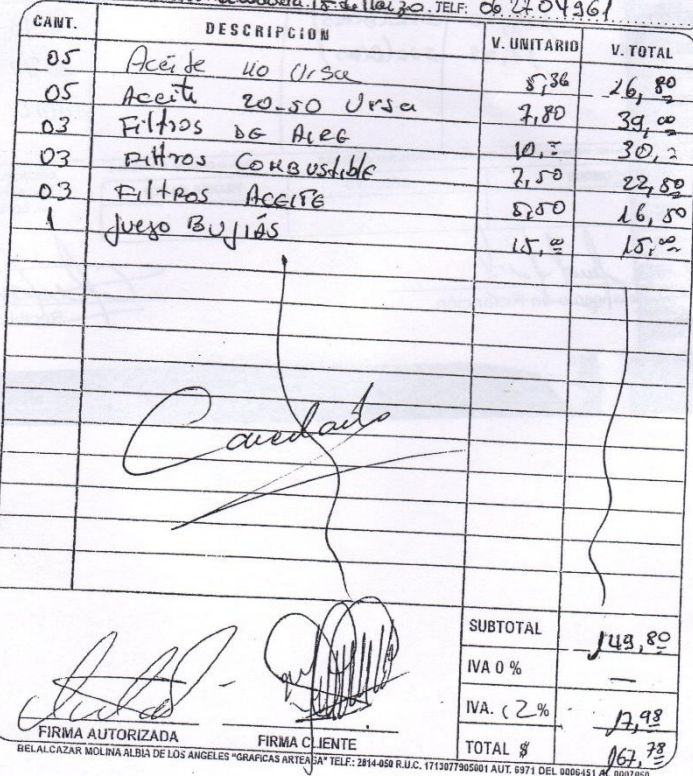 15 de Marzo. TELF: 06 2704961
CANT. DESCRIPCION V. UNITARIO V. TOTAL
05 Aceite 40 Ursa 5,36 26,80
05 Aceite 20-50 Ursa 7,80 39,00
03 Filtros DE AIRE 10,= 30,=
03 Filtros Combustible 7,50 22,50
03 Filtros ACEITE 5,50 16,50
1 juego BUJIÁS 15,00 15,00
Cancelado
SUBTOTAL 149,80
IVA 0 % —
IVA. 12% 17,98
FIRMA AUTORIZADA FIRMA CLIENTE TOTAL $ 167,78
BELALCAZAR MOLINA ALBIA DE LOS ANGELES "GRAFICAS ARTEAGA" TELF.: 2814-050 R.U.C. 1713077905001 AUT. 6971 DEL 0006451 AL 0007050